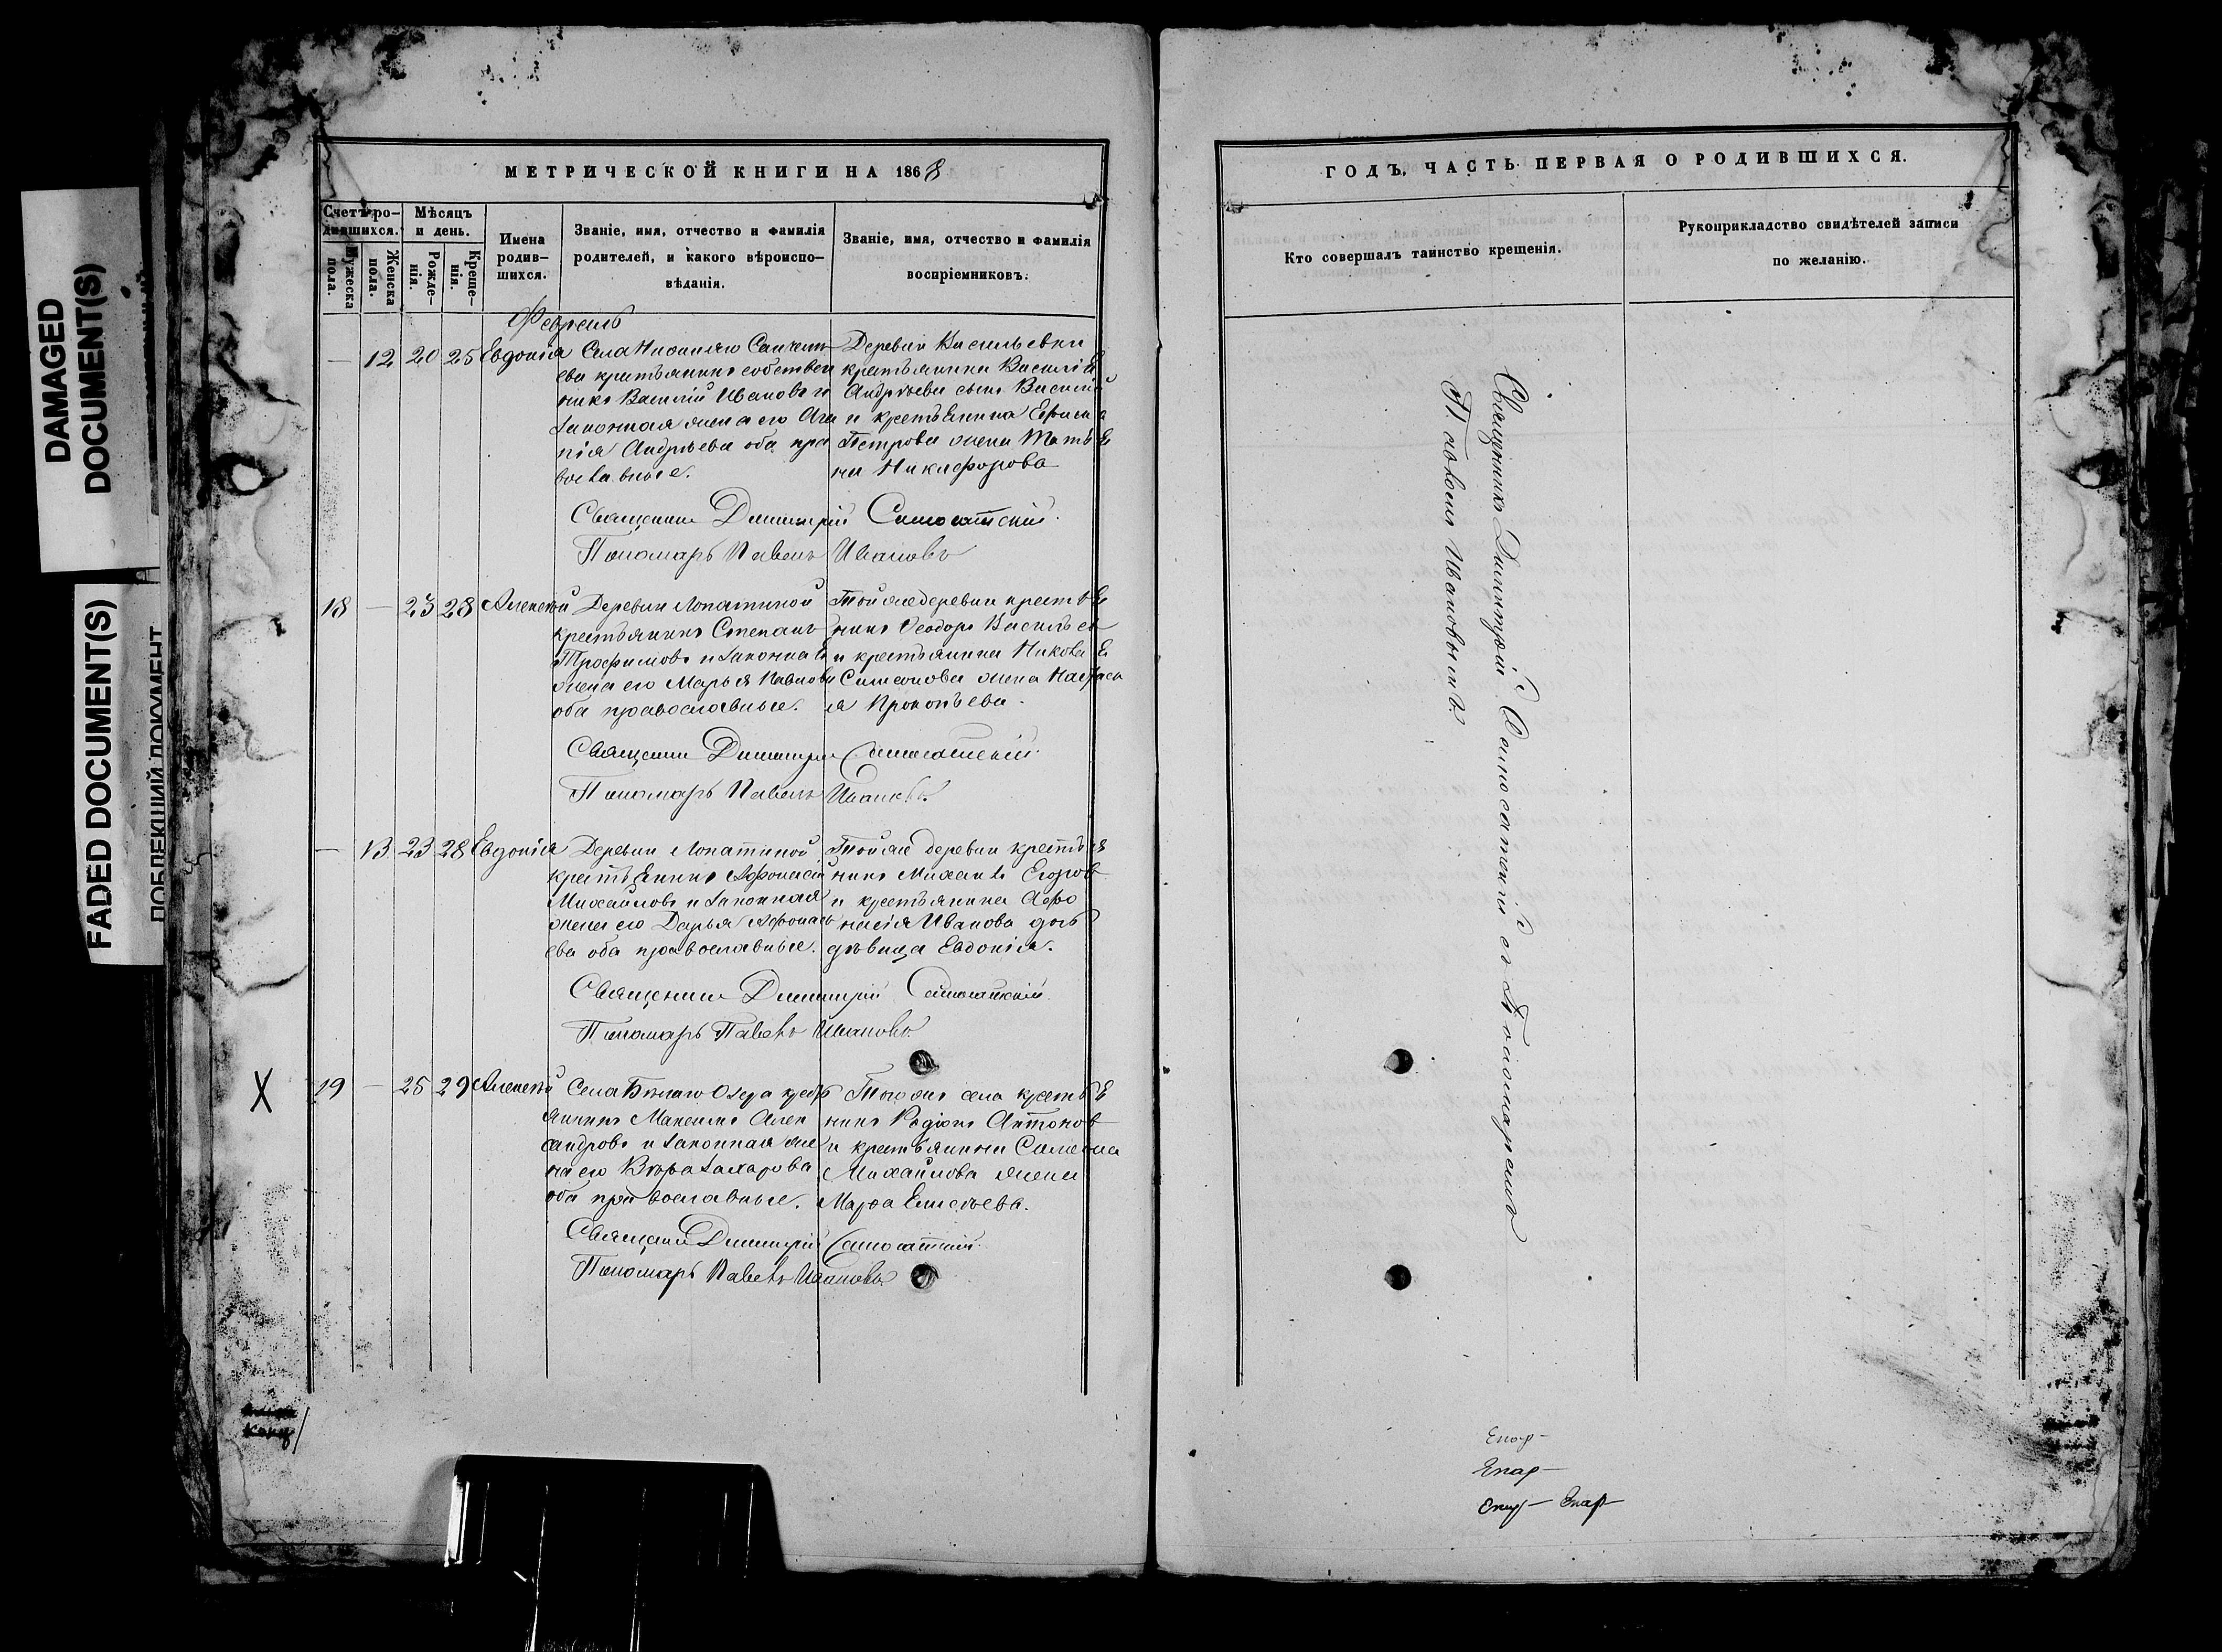 DAMAGED
DOCUMENT(S)
FADED DOCUMENT(S)
ПОБЛЕКШИЙ ДОКУМЕНТ
МЕТРИЧЕСКОЙ КНИГИ НА 1868
Счетъ ро-
дившихся.
Мужеска
пола.
Женска
пола.
Мѣсяцъ
и день.
Рожде-
нія.
Креще-
нія.
Имена
родив-
шихся.
Званіе, имя, отчество и фамилія
родителей, и какого вѣроиспо-
вѣданія.
Званіе, имя, отчество и фамилія
воспріемниковъ.
Февраль
— 12 20 25 Евдокія
Села
ева крестьянинъ собствен
никъ Василій Ивановъ и
законная жена его Ага
пія Андрѣева оба пра
вославные.
Деревни Васильевки
крестьянина Василія
Андрѣева сынъ Василій
и крестьянина Ефима
Петрова жена Татья
на Никифорова
Священникъ Димитрій Самосатскій.
Пономарь Павелъ Ивановъ
18 — 23 28 Алексѣй
Деревни Лопатиной
крестьянинъ Степанъ
Трофимовъ и законная
жена его Марья Павлова
оба православные.
Той же деревни крестья
нинъ Ѳеодоръ Васильев
и крестьянина Якова
Симеонова жена Настась
я Прокопьева.
Священникъ Димитрій Самосатскій.
Пономарь Павелъ Ивановъ.
— 13 23 28 Евдокія
Деревни Лопатиной
крестьянинъ Афонасій
Михайловъ и законная
жена его Дарья Афонась
ева оба православные.
Той же деревни крестья
нинъ Михаилъ Егоров
и крестьянина Афо
насія Иванова дочь
дѣвица Евдокія.
Священникъ Димитрій Самосатскій.
Пономарь Павелъ Ивановъ.
X 19 — 25 29 Алексѣй
Села Бѣлаго Озера кресть
янинъ Максимъ Алек
сандровъ и законная же
на его Вѣра Захарова
оба православные.
Того же села крестья
нинъ Родіонъ Антонов
и крестьянина Симеона
Михайлова жена
Марѳа Емельева.
Священникъ Димитрій Самосатскій.
Пономарь Павелъ Ивановъ.
ГОДЪ, ЧАСТЬ ПЕРВАЯ О РОДИВШИХСЯ.
Кто совершалъ таинство крещенія.
Рукоприкладство свидѣтелей записи
по желанію.
Священникъ Димитрій Самосатскій съ Пономаремъ
Павломъ Ивановымъ.
Епар-
Епар-
Епар- Епар-